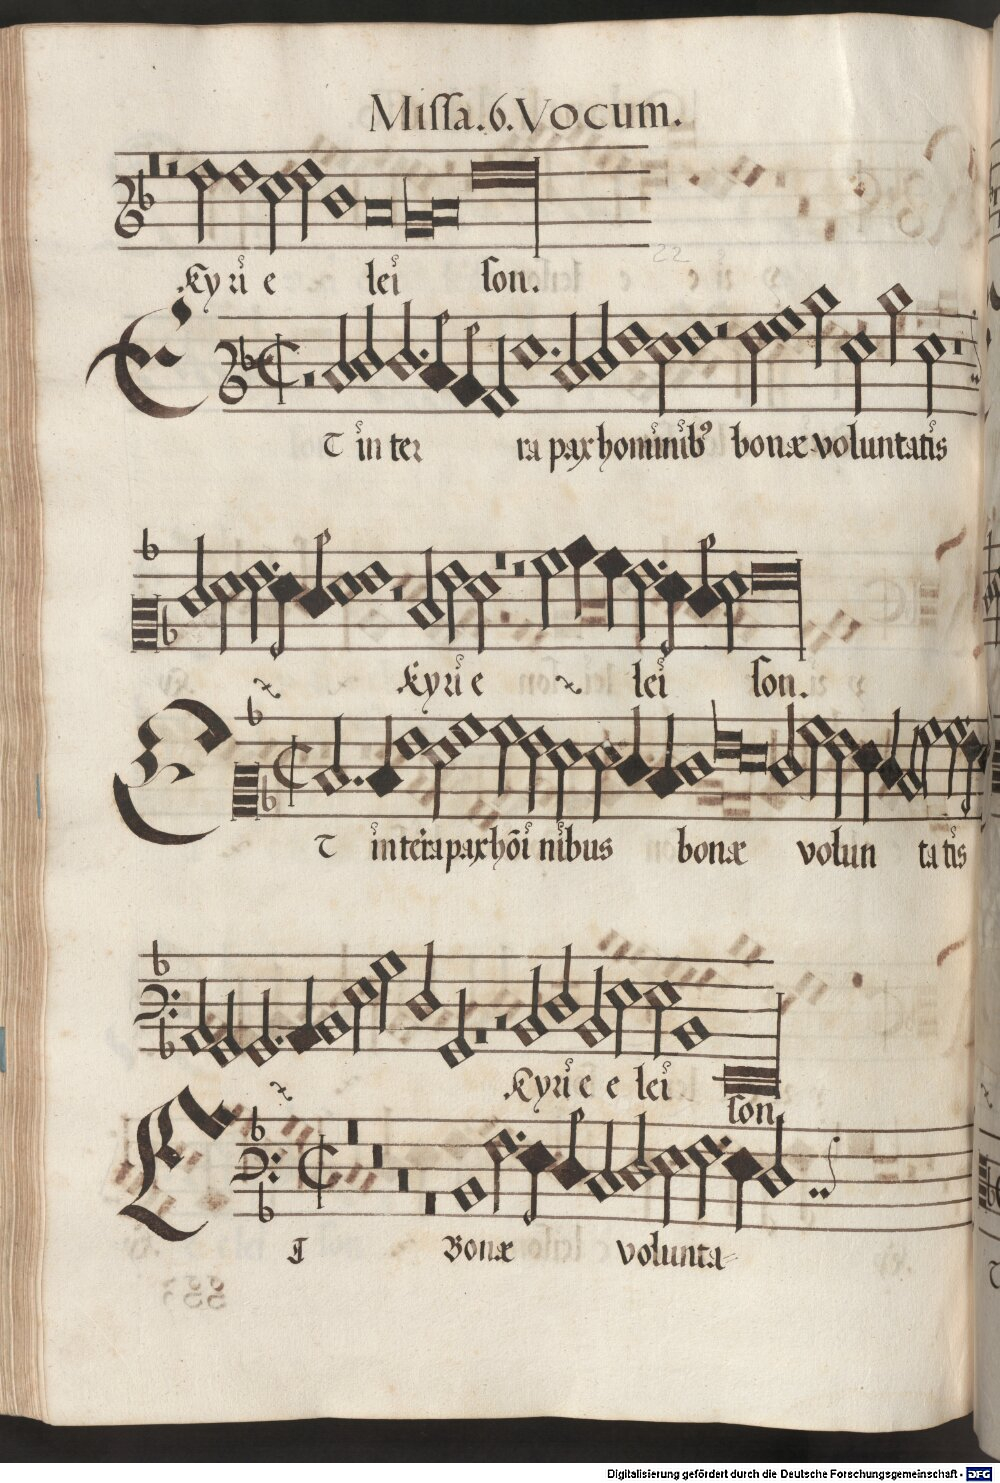 Missa.6.Vocum.
22
Kyri e lei son.
Et in ter ra pax hominib⁹ bonæ voluntatis
Kyri e lei son.
Et in terra pax hõi nibus bonæ volun ta tis
Kyri e e lei son
Et Bonæ volunta=
Digitalisierung gefördert durch die Deutsche Forschungsgemeinschaft - DFG